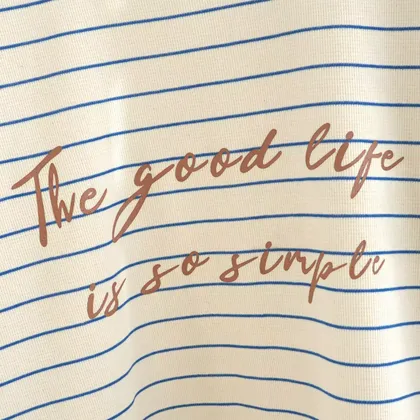 The good life
is so simple